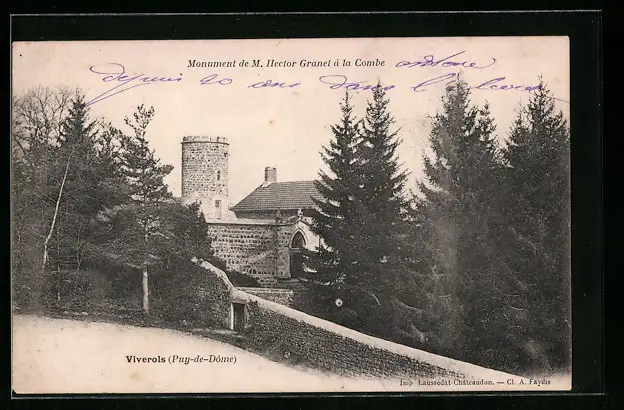 Monument de M. Hector Granet à la Combe
depuis 20 ans dans
Viverols (Puy-de-Dôme)
Imp Laussedat Châteaudun. — Cl. A. Faydis